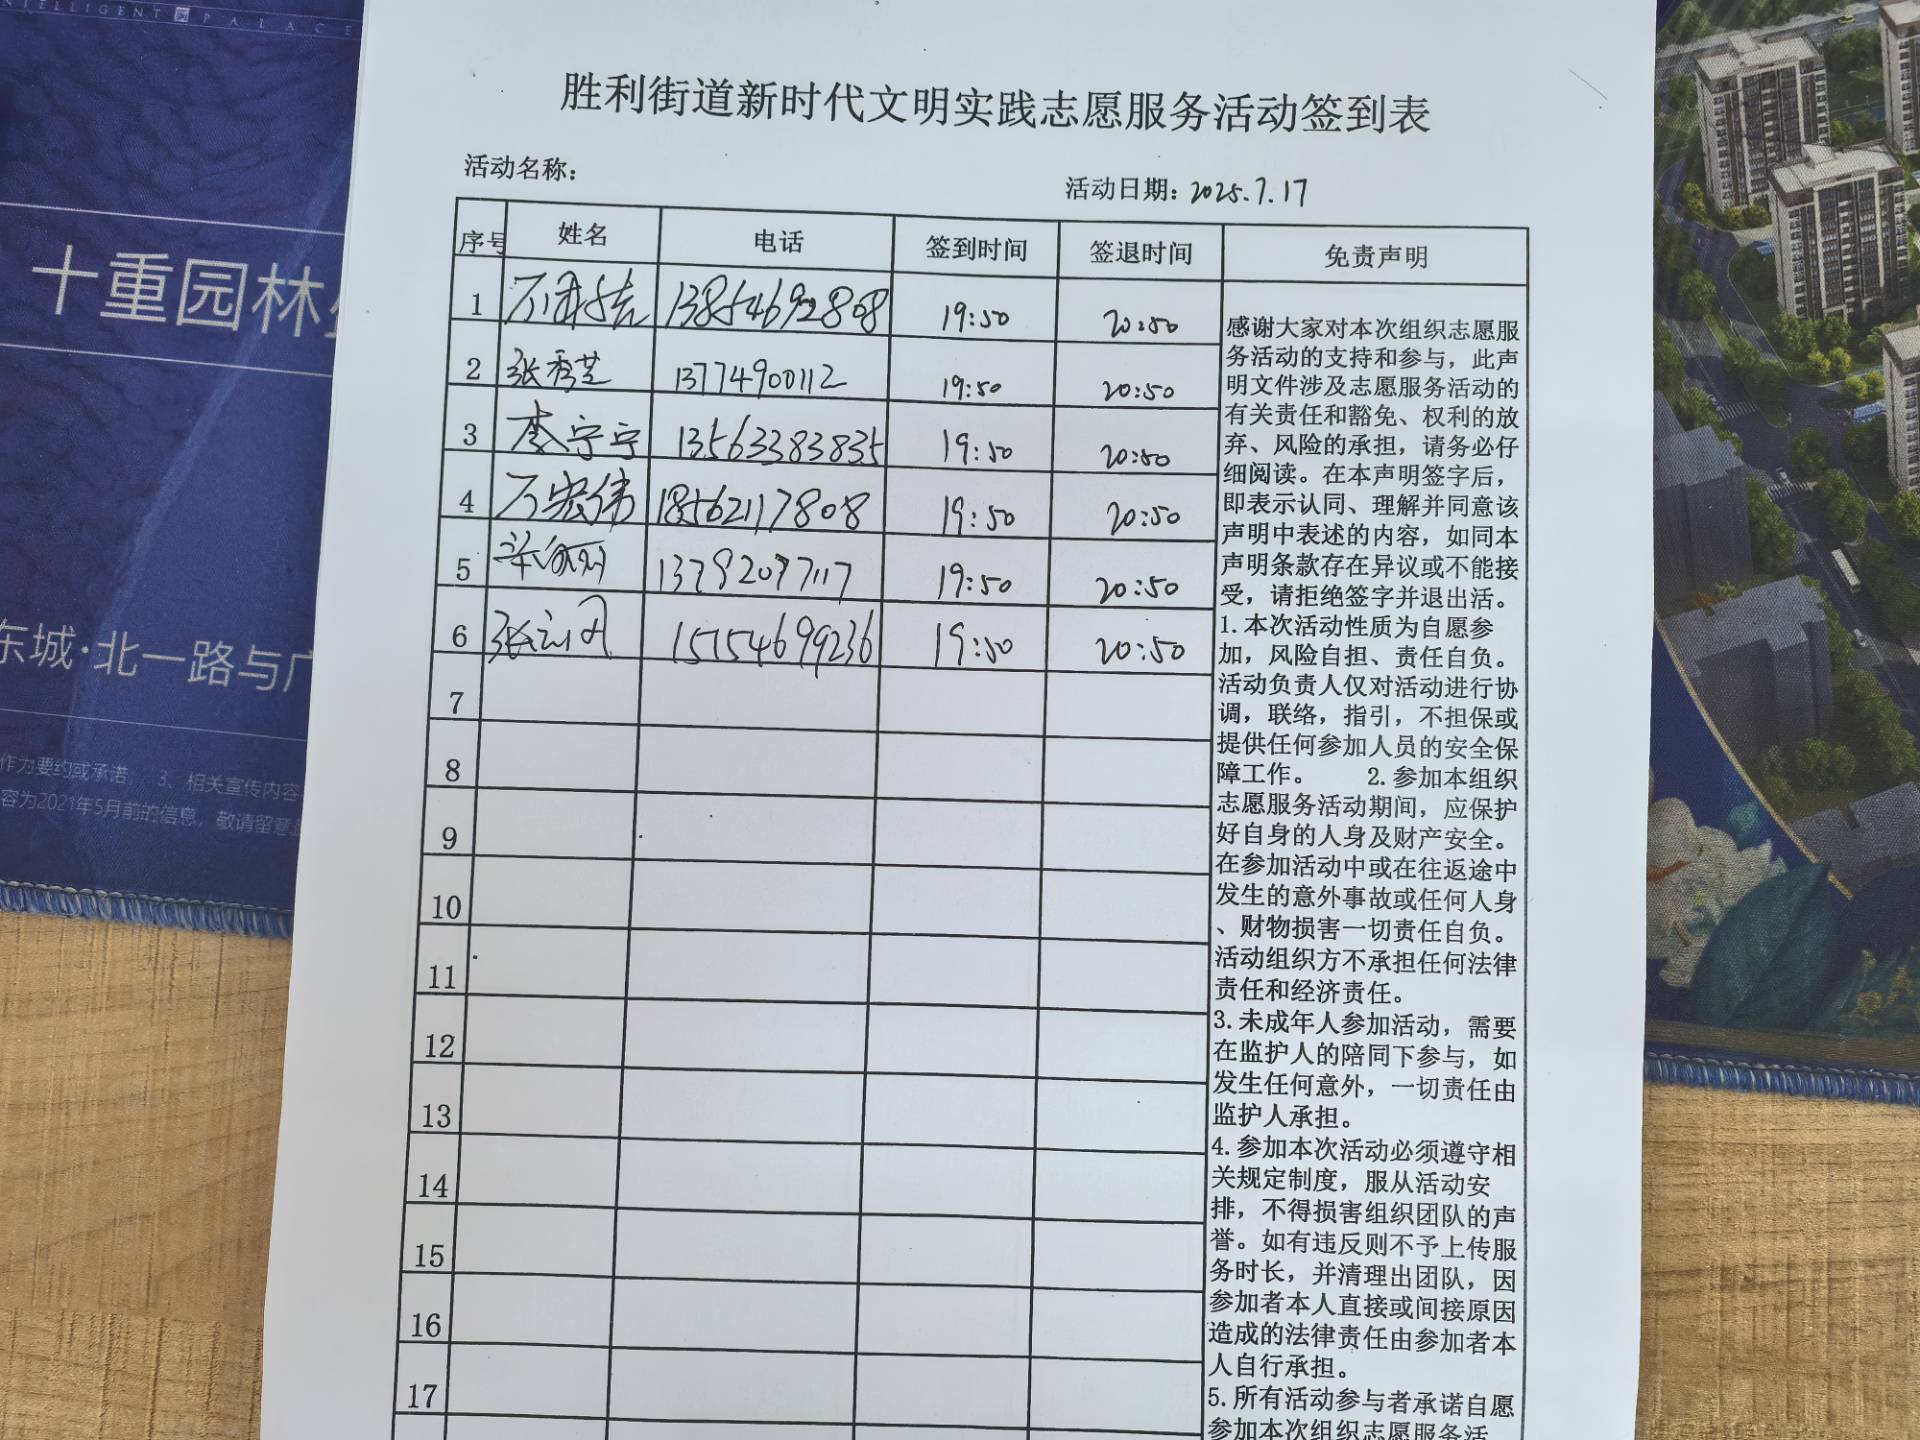 INTELLIGENT PALACE
十重园林
东城·北一路与广
作为要约或承诺; 3、相关宣传内容
容为2021年5月前的信息,敬请留意
胜利街道新时代文明实践志愿服务活动签到表
活动名称:
活动日期: 2025.7.17
序号 姓名 电话 签到时间 签退时间 免责声明
1 13854692808 19:50 20:50
2 张秀芝 13774900112 19:50 20:50
3 李宁宁 13563383835 19:50 20:50
4 万宏伟 18562117808 19:50 20:50
5 13792077117 19:50 20:50
6 15154699236 19:50 20:50
7
8
9
10
11
12
13
14
15
16
17
感谢大家对本次组织志愿服
务活动的支持和参与,此声
明文件涉及志愿服务活动的
有关责任和豁免、权利的放
弃、风险的承担,请务必仔
细阅读。在本声明签字后,
即表示认同、理解并同意该
声明中表述的内容,如同本
声明条款存在异议或不能接
受,请拒绝签字并退出活。
1.本次活动性质为自愿参
加,风险自担、责任自负。
活动负责人仅对活动进行协
调,联络,指引,不担保或
提供任何参加人员的安全保
障工作。 2.参加本组织
志愿服务活动期间,应保护
好自身的人身及财产安全。
在参加活动中或在往返途中
发生的意外事故或任何人身
、财物损害一切责任自负。
活动组织方不承担任何法律
责任和经济责任。
3.未成年人参加活动,需要
在监护人的陪同下参与,如
发生任何意外,一切责任由
监护人承担。
4.参加本次活动必须遵守相
关规定制度,服从活动安
排,不得损害组织团队的声
誉。如有违反则不予上传服
务时长,并清理出团队,因
参加者本人直接或间接原因
造成的法律责任由参加者本
人自行承担。
5.所有活动参与者承诺自愿
参加本次组织志愿服务活